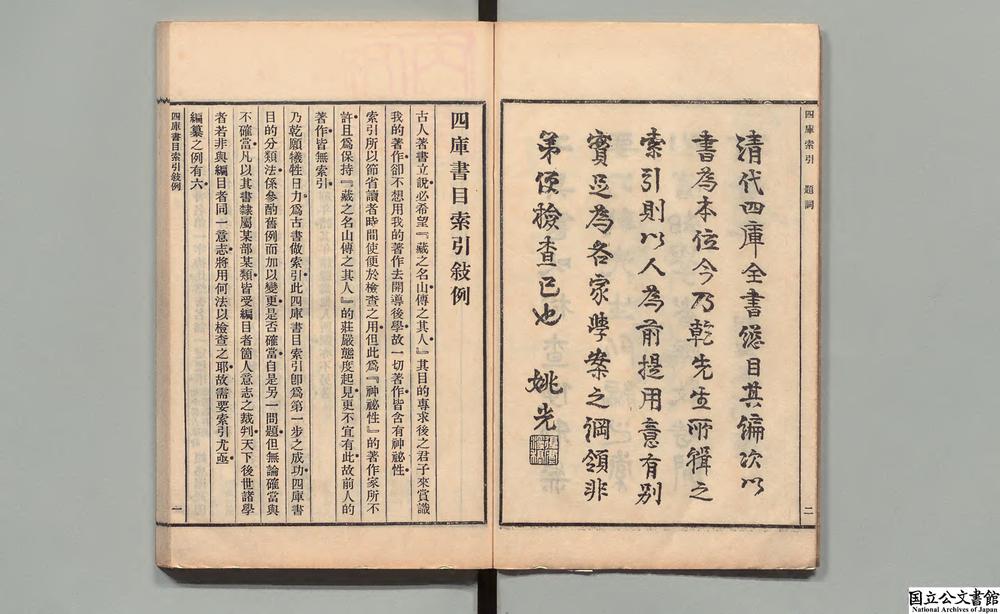 四庫索引　題詞
清代四庫全書總目其編次以
書為本位今乃乾先生所輯之
索引則以人為前提用意有別
實足為各家學案之綱領非
第便檢查已也　姚光
二
四庫書目索引敍例
古人著書立說必希望『藏之名山傳之其人』其目的專求後之君子來賞識
我的著作卻不想用我的著作去開導後學故一切著作皆含有神祕性
索引所以節省讀者時間使便於檢查之用但此爲『神祕性』的著作家所不
許且爲保持『藏之名山傳之其人』的莊嚴態度起見更不宜有此故前人的
著作皆無索引
乃乾願犧牲日力爲古書做索引此四庫書目索引卽爲第一步之成功四庫書
目的分類法係參酌舊例而加以變更是否確當自是另一問題但無論確當與
不確當凡以其書隸屬某部某類皆受編目者箇人意志之裁判天下後世諸學
者若非與編目者同一意志將用何法以檢查之耶故需要索引尤亟
編纂之例有六
四庫書目索引敍例
一
国立公文書館
National Archives of Japan